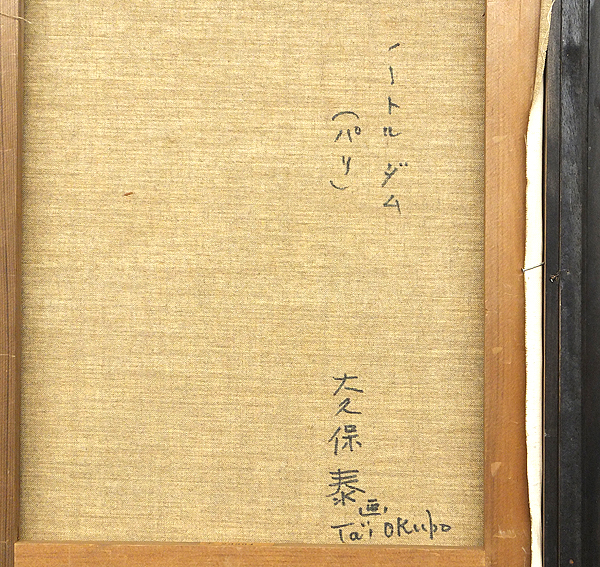 ノートルダム
(パリ)
大久保泰画
Tai Okubo